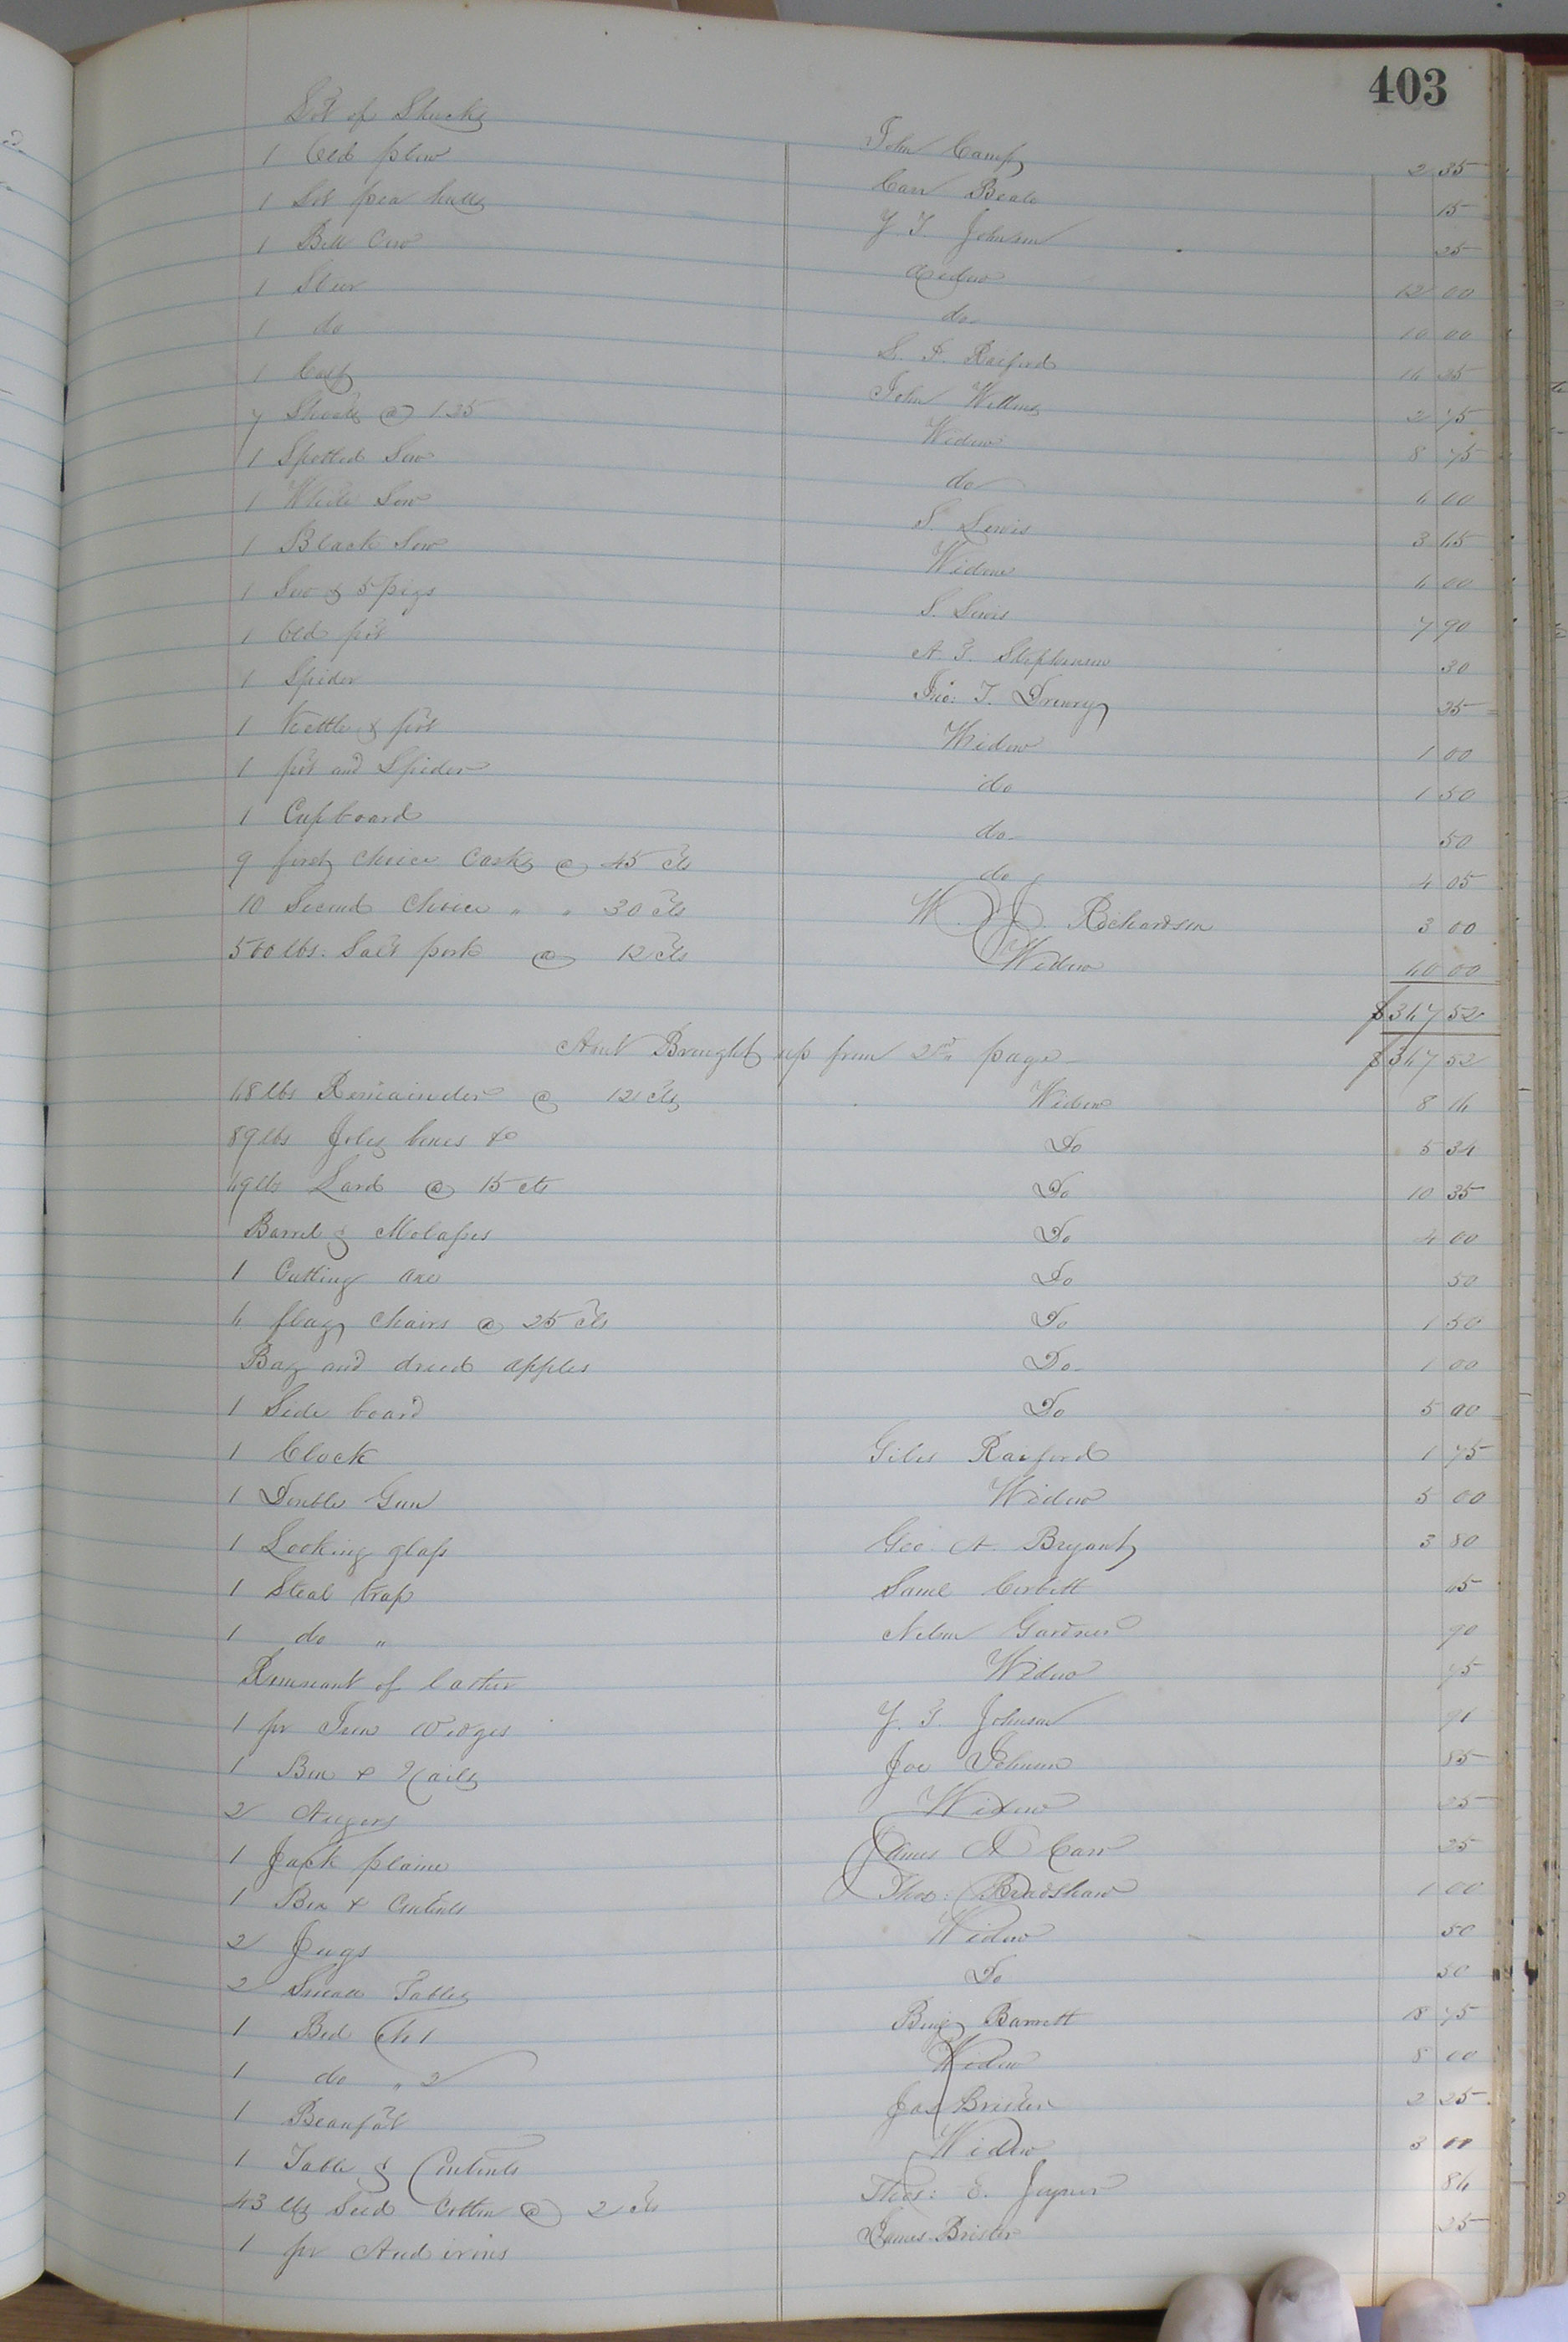 403
Lot of Shucks John Camp 2 35
1 Old plow Carr Beale 15
1 Lot pea hulls J. T. Johnson 25
1 Bell Cow Widow 12 00
1 Steer do 10 00
1 do S. P. Raiford 16 25
1 Calf John Williams 2 75
7 Shoats @ 1.25 Widow 8 75
1 Spotted Sow do 6 00
1 White Sow S. Lewis 3 65
1 Black Sow Widow 6 00
1 Sow & 5 pigs S. Lewis 7 90
1 Old pot A. T. Stephenson 30
1 Spider Jno: T. Drewry 25
1 Kettle & pot Widow 1 00
1 pot and Spider do 1 50
1 Cupboard do 50
9 first Choice Casks @ 45 cts do 4 05
10 Second Choice " " 30 cts W. J. Richardson 3 00
500 lbs. Salt pork @ 12 cts Widow 60 00
$367 52
Amt Brought up from 2nd page $367 52
68 lbs Remainder @ 12 cts Widow 8 16
89 lbs Joles bones &c Do 5 34
69 lbs Lard @ 15 cts Do 10 35
Barrel & Molasses Do 4 00
1 Cutting axe Do 50
6 flag Chairs @ 25 cts Do 1 50
Bag and dried apples Do 1 00
1 Side board Do 5 00
1 Clock Giles Raiford 1 75
1 Double Gun Widow 5 00
1 Looking glass Geo. A. Bryant 3 80
1 Steal trap Saml Corbitt 65
1 do " Nelson Gardner 90
Remnant of leather Widow 75
1 pr Iron Wedges J. T. Johnson 91
1 Box & Nails Joe Johnson 85
2 Augers Widow 25
1 Jack plaine James A Carr 25
1 Box & Contents Thos: Bradshaw 1 00
2 Jugs Widow 50
2 Small Tables Do 50
1 Bed No 1 Benj Barrett 18 75
1 do " 2 Widow 8 00
1 Beaufat Jas Brister 2 25
1 Table & Contents Widow 3 00
43 lbs Seed Cotton @ 2 cts Thos: E. Joyner 86
1 pr And irons James Brister 25